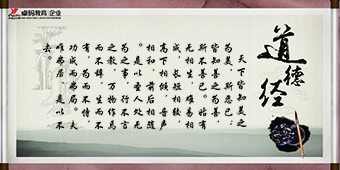 卓码教育|企业
道德经
天下皆知美之
为美，斯恶已；
皆知善之为善，
斯不善已。故有
无相生，难易相
成，长短相较，
高下相倾，音声
相和，前后相随
。是以圣人处无
为之事，行不言
之教，万物作焉
而不辞，生而不
有，为而不恃，
功成而弗居。夫
唯弗居，是以不
去。